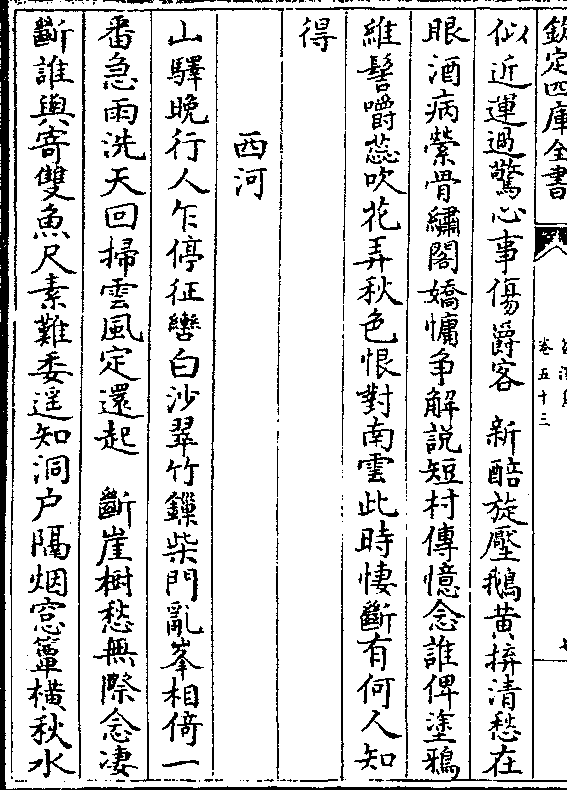 欽定四庫全書
卷五十三
似近運過驚心事傷爵客　新醅旋壓鵝黃拚清愁在
眼酒病縈骨繡閣嬌慵爭解說短村傳憶念誰俾塗鴉
維髻嚼蕊吹花弄秋色恨對南雲此時悽斷有何人知
得
西河
山驛晚行人乍停征轡白沙翠竹鏁柴門亂峯相倚一
番急雨洗天回掃雲風定還起　斷崖樹愁無際念凄
斷誰與寄雙魚尺素難委遥知洞户隔烟窓簟横秋水